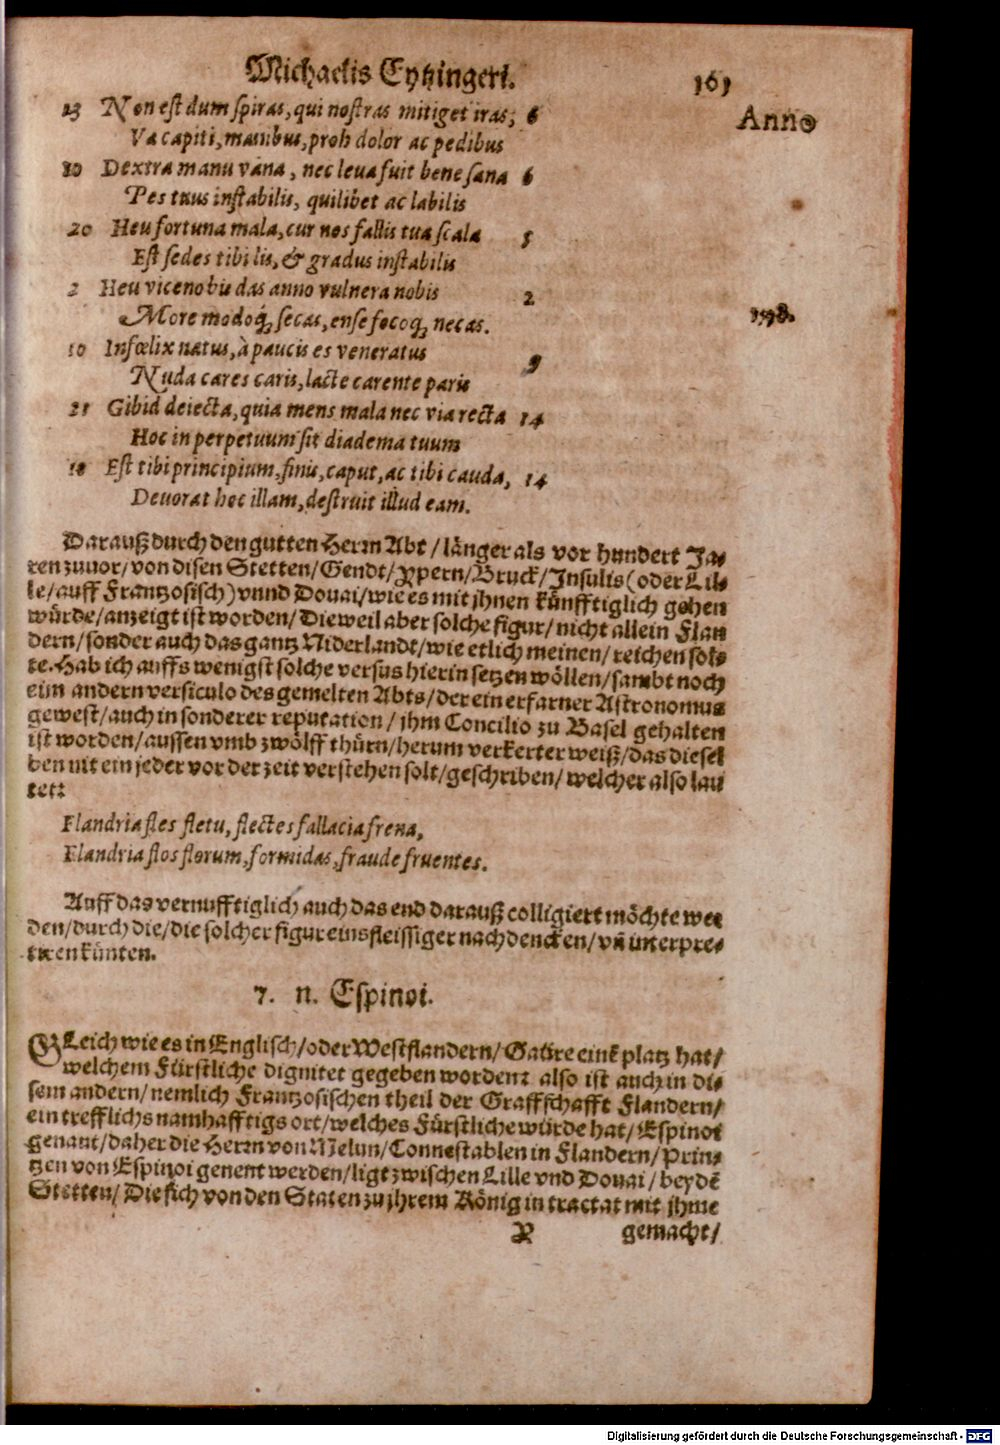 Michaelis Eytzingeri. 161
Anno
13 Non est dum spiras, qui nostras mitiget iras; 6
Va capiti, manibus, proh dolor ac pedibus
10 Dextra manu vana, nec leua fuit bene sana 6
Pes tuus instabilis, quilibet ac labilis
20 Heu fortuna mala, cur nos fallis tua scala 5
Est sedes tibi lis, & gradus instabilis
2 Heu vicenobis das anno vulnera nobis 2
More modoq́; secas, ense focoq́; necas. 1578.
10 Infœlix natus, à paucis es veneratus 9
Nuda cares caris, lacte carente paris
21 Gibid deiecta, quia mens mala nec via recta 14
Hoc in perpetuum sit diadema tuum
18 Est tibi principium, finis, caput, ac tibi cauda, 14
Deuorat hoc illam, destruit illud eam.
Darauß durch den gutten Herrn Abt / länger als vor hundert Ja-
ren zuuor / von disen Stetten / Gendt / Ypern / Bruck / Insulis (oder Lil-
le / auff Frantzosisch) vnnd Douai / wie es mit jhnen künfftiglich gehen
würde / anzeigt ist worden / Dieweil aber solche figur / nicht allein Flan
dern / sonder auch das gantz Niderlandt / wie etlich meinen / reichen sol-
te. Hab ich auffs wenigst solche versus hierin setzen wöllen / sambt noch
eim andern versiculo des gemelten Abts / der ein erfarner Astronomus
gewest / auch in sonderer reputation / jhm Concilio zu Basel gehalten
ist worden / aussen vmb zwölff thürn / herum verkerter weiß / das diesel
ben nit ein jeder vor der zeit verstehen solt / geschriben / welcher also lau
tet:
Flandria fles fletu, flectes fallacia frena,
Flandria flos florum, formidas, fraude fruentes.
Auff das vernufftiglich auch das end darauß colligiert möchte wer
den / durch die / die solcher figur eins fleissiger nachdencken / vñ interpre-
tiren künten.
7. n. Espinoi.
GLeich wie es in Englisch / oder Westflandern / Gaure eink platz hat /
welchem Fürstliche dignitet gegeben worden: also ist auch in di-
sem andern / nemlich Frantzosischen theil der Graffschafft Flandern /
ein trefflichs namhafftigs ort / welches Fürstliche würde hat / Espinoi
genant / daher die Herrn von Melun / Connestablen in Flandern / Prin-
tzen von Espinoi genent werden / ligt zwischen Lille vnd Douai / beydẽ
Stetten / Die sich von den Staten zu jhrem König in tractat mit jhme
X gemacht /
Digitalisierung gefördert durch die Deutsche Forschungsgemeinschaft - DFG